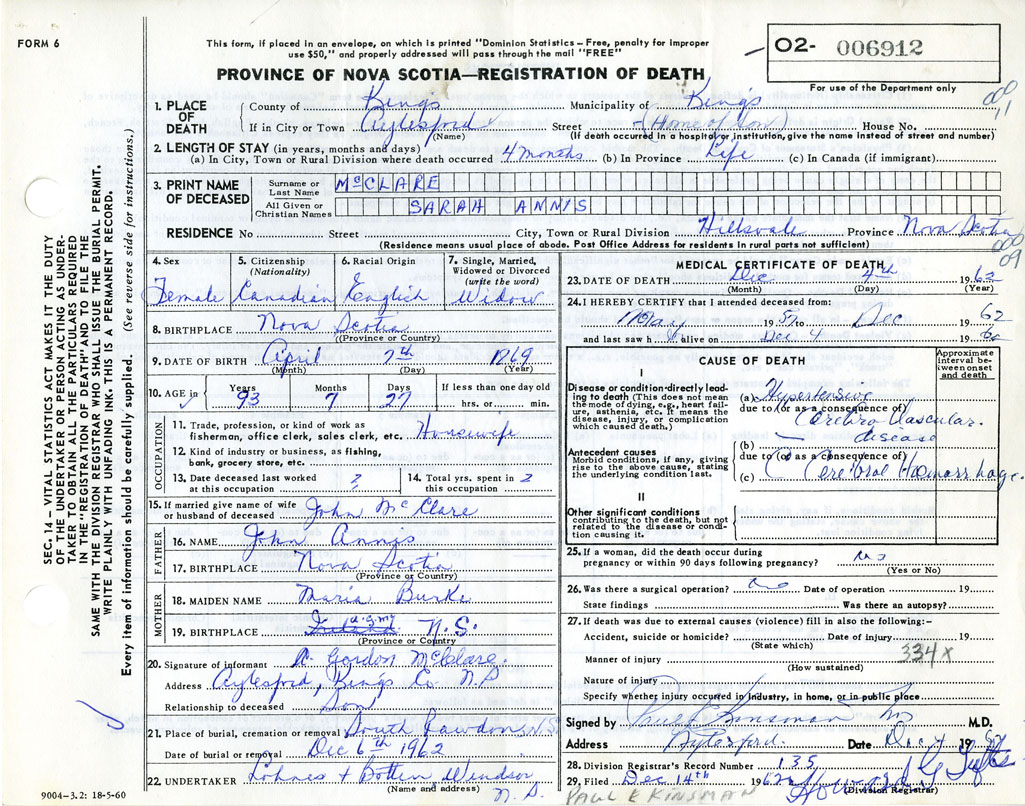 FORM 6
This form, if placed in an envelope, on which is printed "Dominion Statistics – Free, penalty for improper
use $50," and properly addressed will pass through the mail "FREE"
O2- 006912
For use of the Department only
PROVINCE OF NOVA SCOTIA—REGISTRATION OF DEATH
SEC. 14 – VITAL STATISTICS ACT MAKES IT THE DUTY
OF THE UNDERTAKER OR PERSON ACTING AS UNDER-
TAKER TO OBTAIN ALL THE PARTICULARS REQUIRED
IN THE "REGISTRATION OF DEATH" AND TO FILE THE
SAME WITH THE DIVISION REGISTRAR WHO SHALL ISSUE THE BURIAL PERMIT.
WRITE PLAINLY WITH UNFADING INK. THIS IS A PERMANENT RECORD.
Every item of information should be carefully supplied. (See reverse side for instructions.)
1. PLACE OF DEATH County of Kings Municipality of Kings
If in City or Town Aylesford Street (Home of Son) House No.
(Name) (If death occurred in a hospital or institution, give the name instead of street and number)
2. LENGTH OF STAY (in years, months and days)
(a) In City, Town or Rural Division where death occurred 4 months (b) In Province Life (c) In Canada (if immigrant)
3. PRINT NAME OF DECEASED
Surname or Last Name McCLARE
All Given or Christian Names SARAH ANNIS
RESIDENCE No Street City, Town or Rural Division Hillsvale Province Nova Scotia
(Residence means usual place of abode. Post Office Address for residents in rural parts not sufficient)
009
4. Sex 5. Citizenship (Nationality) 6. Racial Origin 7. Single, Married, Widowed or Divorced (write the word)
Female Canadian English Widow
8. BIRTHPLACE Nova Scotia
(Province or Country)
9. DATE OF BIRTH April 7th 1869
(Month) (Day) (Year)
10. AGE in Years Months Days If less than one day old
93 7 27 hrs. or min.
OCCUPATION
11. Trade, profession, or kind of work as
fisherman, office clerk, sales clerk, etc. Housewife
12. Kind of industry or business, as fishing,
bank, grocery store, etc.
13. Date deceased last worked at this occupation ? 14. Total yrs. spent in this occupation ?
15. If married give name of wife
or husband of deceased John McClare
FATHER
16. NAME John Annis
17. BIRTHPLACE Nova Scotia
(Province or Country)
MOTHER
18. MAIDEN NAME Maria Burke
19. BIRTHPLACE Ireland N.S.
(Province or Country)
20. Signature of informant R. Gordon McClare
Address Aylesford, Kings Co. N.S
Relationship to deceased Son
21. Place of burial, cremation or removal South Rawdon, N.S.
Date of burial or removal Dec 6th 1962
22. UNDERTAKER Lohnes + Botten Windsor
(Name and address) N.S.
9004-3.2: 18-5-60
MEDICAL CERTIFICATE OF DEATH
23. DATE OF DEATH Dec 4th 1962
(Month) (Day) (Year)
24. I HEREBY CERTIFY that I attended deceased from:
May 1957 to Dec 1962
and last saw h alive on Dec 4 19
CAUSE OF DEATH
Approximate interval between onset and death
I
Disease or condition directly lead-
ing to death (This does not mean
the mode of dying, e.g., heart fail-
ure, asthenia, etc. It means the
disease, injury, or complication
which caused death.)
(a) Hypertensive
due to (or as a consequence of)
Cerebro Vascular
disease
Antecedent causes
Morbid conditions, if any, giving
rise to the above cause, stating
the underlying condition last.
(b)
due to (or as a consequence of)
(c) Cerebral Haemorrhage
II
Other significant conditions
contributing to the death, but not
related to the disease or condi-
tion causing it.
25. If a woman, did the death occur during
pregnancy or within 90 days following pregnancy? no
(Yes or No)
26. Was there a surgical operation? no Date of operation 19
State findings Was there an autopsy?
27. If death was due to external causes (violence) fill in also the following:-
Accident, suicide or homicide? Date of injury 19
(State which) 334x
Manner of injury
(How sustained)
Nature of injury
Specify whether injury occurred in industry, in home, or in public place
Signed by Paul E Kinsman M.D.
Address Aylesford. Date Dec 19
28. Division Registrar's Record Number 135
29. Filed Dec 14th 1962 Howard
(Division Registrar)
PAUL E KINSMAN